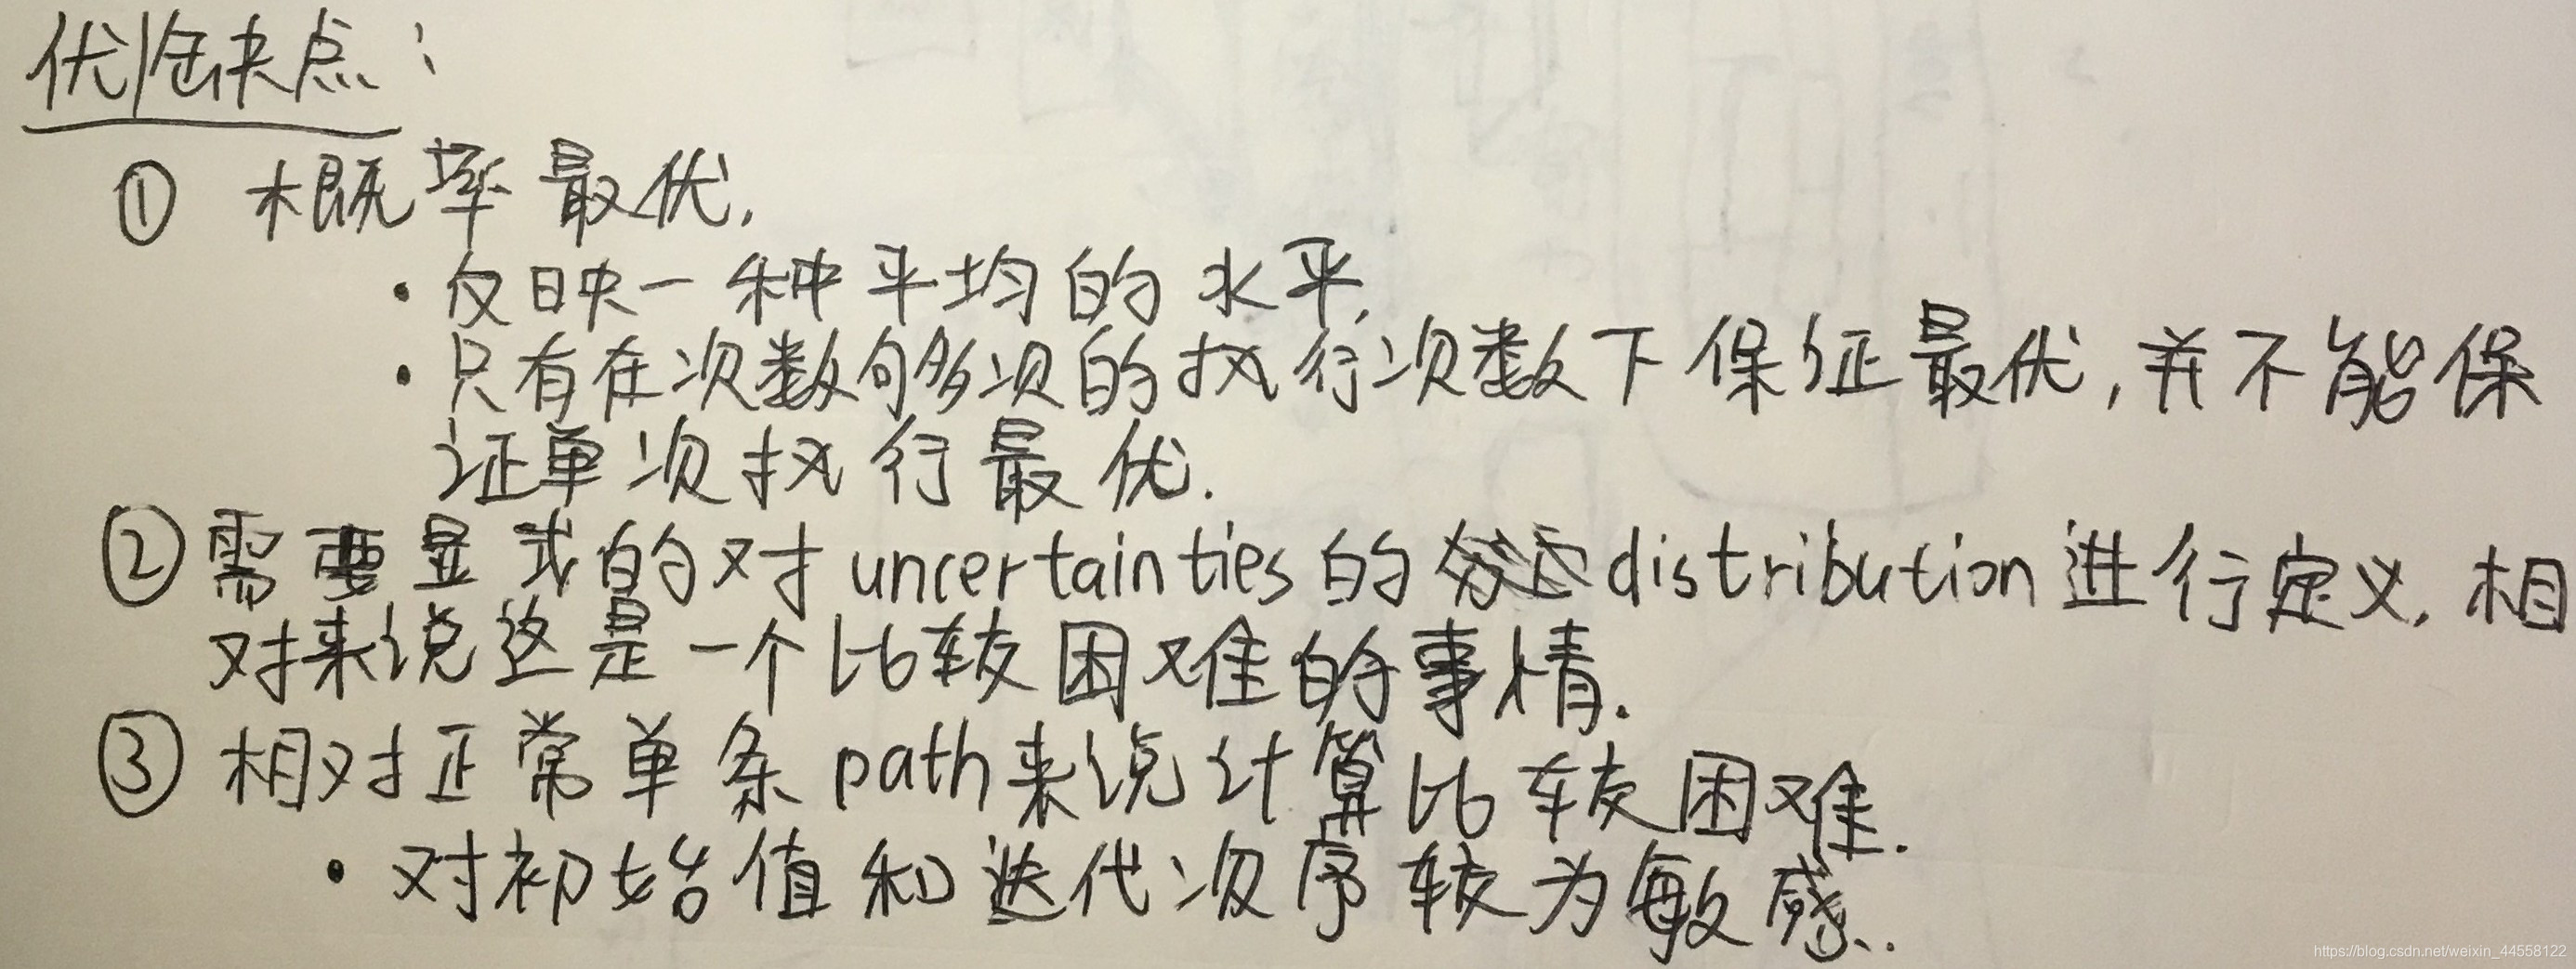 优/缺点:
① 概率最优.
· 反映一种平均的水平.
· 只有在次数够多次的执行次数下保证最优,并不能保
证单次执行最优.
② 需要显式的对 uncertainties 的 distribution 进行定义. 相
对来说这是一个比较困难的事情.
③ 相对正常单条 path 来说计算比较困难.
· 对初始值和迭代次序较为敏感.
https://blog.csdn.net/weixin_44558122